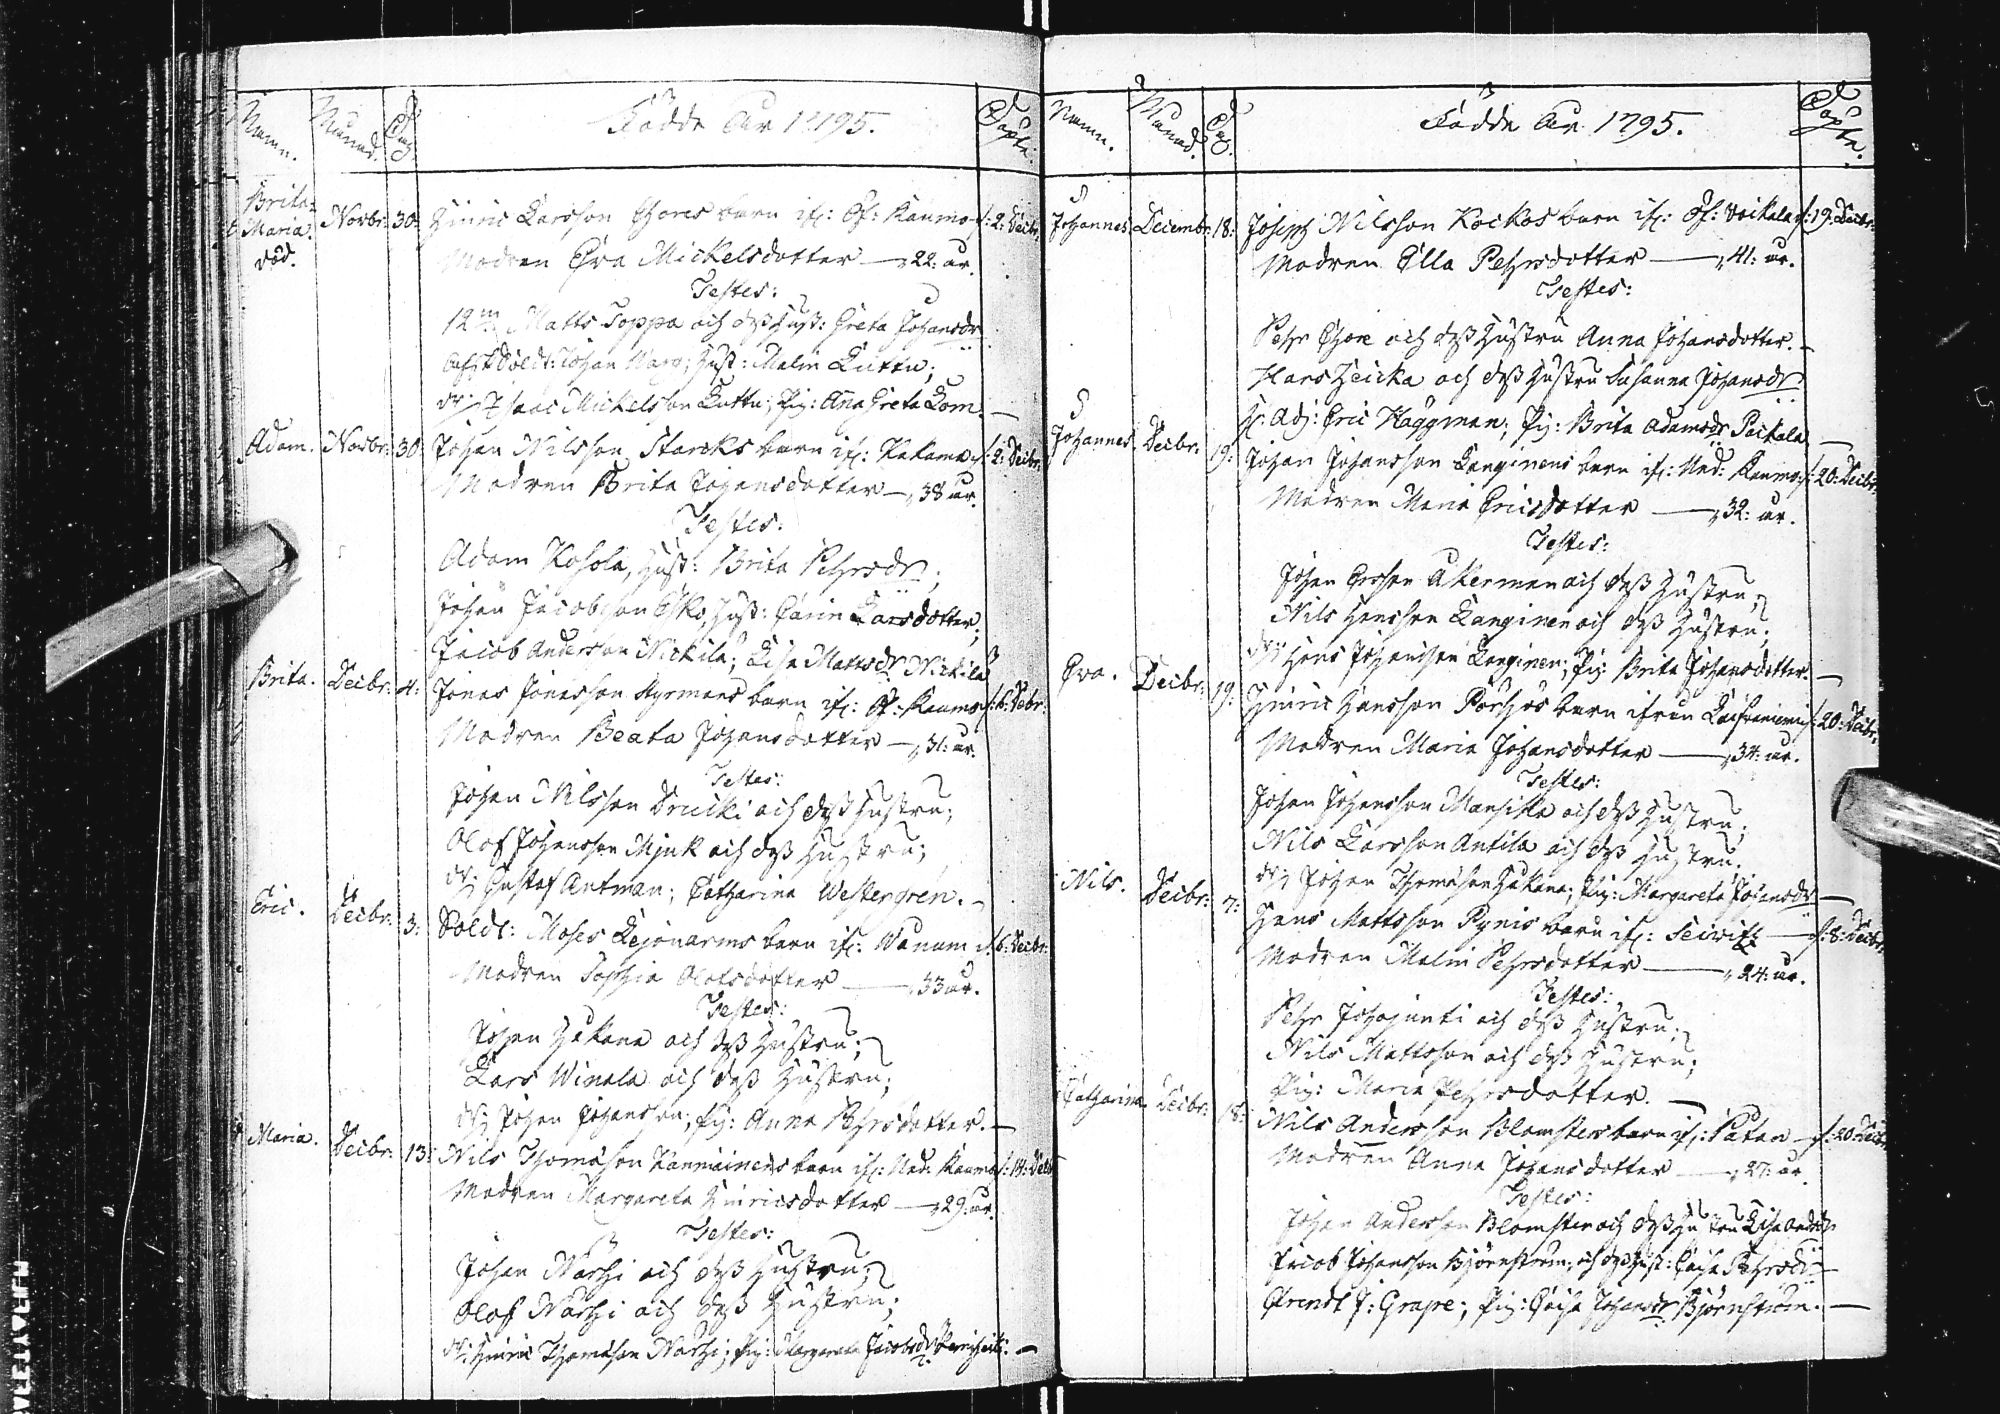 Namn. Månad. Dag. Födde År 1795. Döpte.
Brita Maria. död. Novbr: 30. Hinric Larsson Thores barn ifr: Öf: Kaumo d: 2: Decbr:
Modren Eva Mickelsdotter — 22: år.
Testes:
12 m: Matts Soppa och dess Hust: Greta Johansdr
Afsk. Soldt: Johan Warg; Hust: Malin Kuttu;
Dr: Isaac Mickelsson Kuttu; Pig: Anna Greta Kom. —
Adam. Novbr: 30. Johan Nilsson Starcks barn ifr: Kakama d: 2: Decbr:
Modren Brita Johansdotter — 38 år.
Testes:
Adam Kohola, Hust: Brita Pehrsdr;
Johan Jacobsson Esko, Hust: Carin Larsdotter;
Jacob Andersson Nickila; Lisa Mattsdr Nickila
Brita. Decbr: 4: Jonas Jonasson Styrmans barn ifr: Öf: Kaumo d: 6: Decbr:
Modren Beata Johansdotter — 31: år.
Testes:
Johan Nilsson Drucki och dess Hustru;
Olof Johansson Mjuk och dess Hustru;
Dr: Gustaf Antman; Catharina Westergren. —
Eric. Decbr: 3: Soldt: Moses Lejonarms barn ifr: Wanum d: 6: Decbr:
Modren Sophia Olofsdotter — 33 år.
Testes:
Johan Hakana och dess Hustru;
Lars Winala och dess Hustru;
Dr: Johan Johansson; Pig: Anna Pehrsdotter. —
Maria. Decbr: 13: Nils Thomasson Kannainens barn ifr: Ned: Kaumo d: 14: Decbr
Modren Margareta Hinricsdotter — 29: år.
Testes:
Johan Narhi och dess Hustru;
Olof Narhi och dess Hustru;
Dr: Hinric Thomasson Narhi; Pig: Margareta Jacobsdr —
Namn. Månad. Dag. Födde År 1795. Döpte.
Johannes Decembr: 18: Joseph Nilsson Kockos barn ifr: Öf: Voikala d: 19: Decbr:
Modren Ella Pehrsdotter — 41: år.
Testes:
Pehr Thore och dess Hustru Anna Johansdotter. —
Hans Heicka och dess Hustru Susanna Johansdr
H: Adj: Eric Häggman; Pig: Brita Adamsdr Paikala —
Johannes. Decbr: 19: Johan Johansson Kanginens barn ifr: Ned: Kaumo d: 20: Decbr:
Modren Maria Ericsdotter — 32: år.
Testes:
Johan Ersson Åkerman och dess Hustru;
Nils Hansson Kanginen och dess Hustru;
Dr: Hans Johansson Kanginen; Pig: Brita Johansdotter. —
Eva. Decbr: 19: Hinric Hansson Pörhös barn ifrån d: 20: Decbr:
Modren Maria Johansdotter — 34: år.
Testes:
Johan Johansson Mansikka och dess Hustru;
Nils Larsson Antila och dess Hustru;
Dr: Johan Thomasson Hakana; Pig: Margareta Johansdr —
Nils. Decbr: 7: Hans Mattsson Pynis barn ifr: d: 8: Decbr:
Modren Malin Pehrsdotter — 24: år.
Testes:
Pehr Johojunti och dess Hustru;
Nils Mattsson och dess Hustru;
Pig: Maria Pehrsdotter. —
Catharina. Decbr: 18: Nils Andersson Blomsters barn ifr: Päkan — d: 20: Decbr
Modren Anna Johansdotter — 27: år.
Testes:
Johan Andersson Blomster och dess Hustru Lisa Andsdr
Jacob Johansson Björnström; och dess Hust: Caisa Pehrsdr —
Arendt J: Grape; Pig: Caisa Johansdr Björnström. —